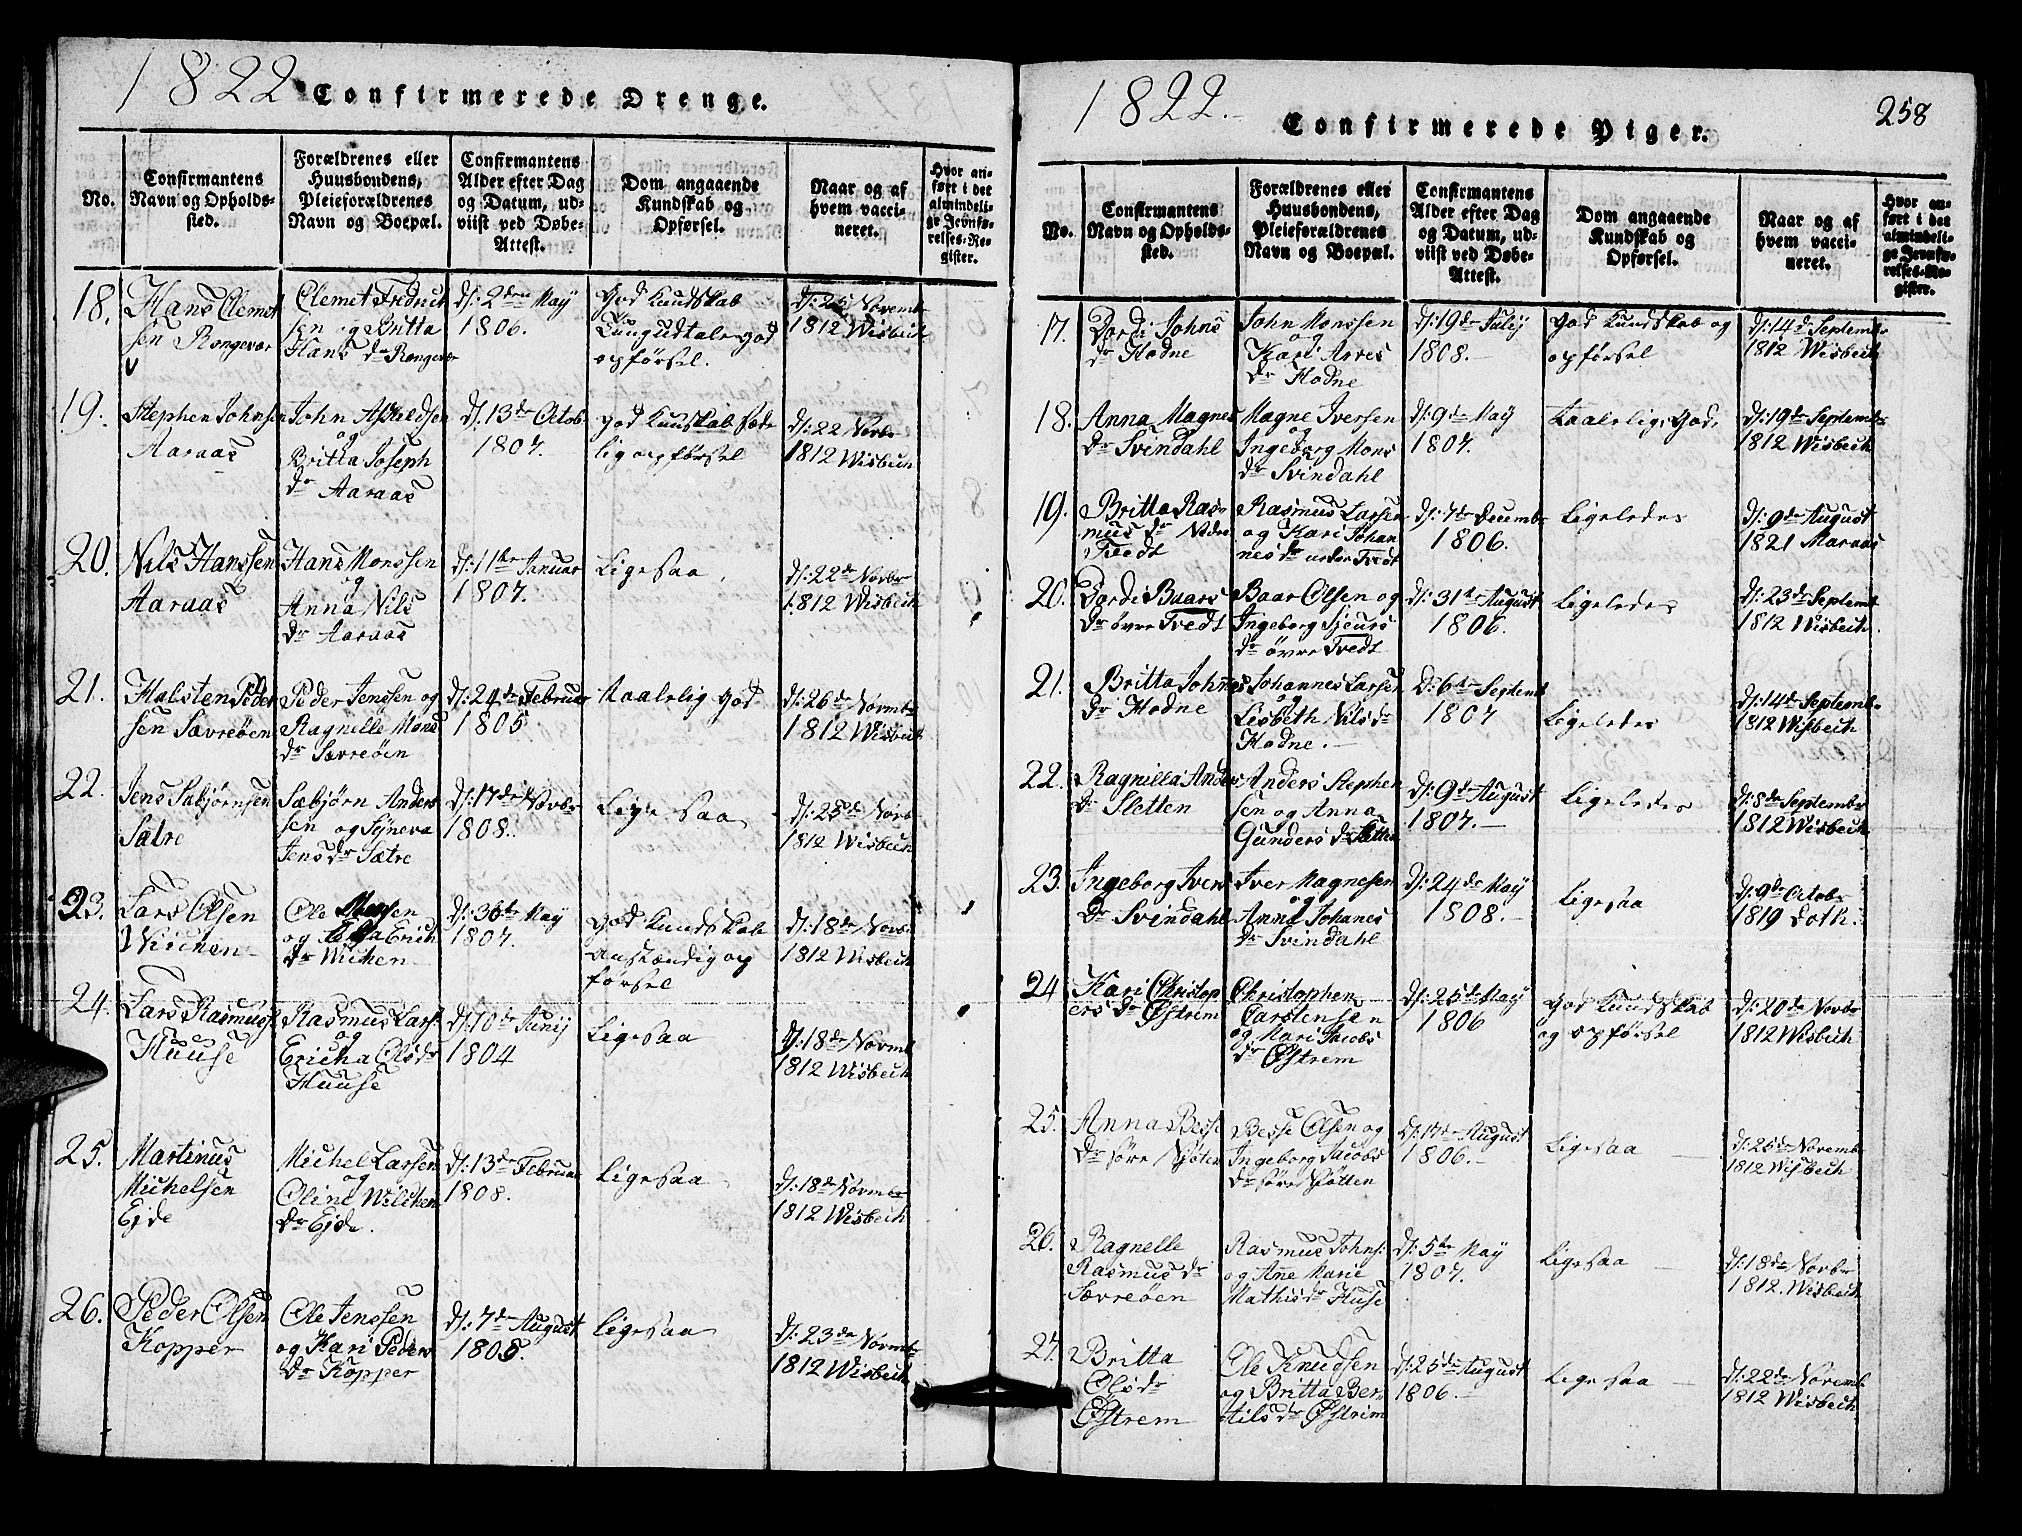 1822 Confirmerede Drenge.
No.
Confirmantens
Navn og Opholds-
sted.
Forældrenes eller
Huusbondens,
Pleieforældrenes
Navn og Boepæl.
Confirmantens
Alder efter Dag
og Datum, ud-
viist ved Døbe-
Attest.
Dom angaaende
Kundskab og
Opførsel.
Naar og af
hvem vacci-
neret.
Hvor an-
ført i det
almindeli-
ge Jevnfø-
relses-Re-
gister.
18.
Hans Clemet
sen Rongevær
Clemet Fridrich
sen og Britta
Hans dr Rongevær
d/: 2den May
1806.
God Kundskab
god
opførsel.
Novemb
1812 Wisbech
19.
Stephen Johnsen
Aaraas
John
og
Britta Joseph
dr Aaraas
d/: 13de Octob
1807.
god Kundskab
lig opførsel
d/: 22 Novbr
1812 Wisbech
20.
Nils Hanssen
Aaraas
Hans Monssen
og
Anna Nils
dr Aaraas
d/: 11te Januar
1807.
Ligesaa
d/: 22de Novbr
1812 Wisbech
21.
Halsten Peder
sen Sævreöen
Peder Jenssen og
Ragnille Mons
dr Sævreöen
d/: 24de Februar
1805
taalelig god
d/: 26de Novmbr
1812 Wisbech
22.
Jens Sæbjørnsen
Sætre
Sæbjørn Anders
sen og Synneva
Jens dr Sætre
d/: 17de Novbr
1808.
Ligesaa
d/: 25de Novb
1812 Wisbech
23.
Lars Olsen
Wichen
Ole
og Erich
dr Wichen
d/: 30te May
1807.
God Kundskab
anstændig op
førsel
d/: 18de Novbr
1812 Wisbech
24.
Lars Rasmuss.
Huuse
Rasmus Lars.
og
Ericha Ols dr
Huuse
d/: 10de Junij
1804
Ligesaa
d/: 18de Novmb
1812 Wisbech
25.
Martinus
Michelsen
Ejde
Michel Larsen
og
Oline Willchen
dr Ejde.
d/: 13de Februar
1808.
Ligesaa
d/: 18de Novmbr
1812 Wisbech
26.
Peder Olsen
Kopper
Ole Jenssen
og Kari Peders
dr Kopper
d/: 7de August
1805.
Ligesaa
d/: 23de Novmbr
1812 Wisbech
1822.
Confirmerede Piger.
258
No.
Confirmantens
Navn og Opholds-
sted.
Forældrenes eller
Huusbondens,
Pleieforældrenes
Navn og Boepæl.
Confirmantens
Alder efter Dag
og Datum, ud-
viist ved Døbe-
Attest.
Dom angaaende
Kundskab og
Opførsel.
Naar og af
hvem vacci-
neret.
Hvor an-
ført i det
almindeli-
ge Jevnfø-
relses-Re-
gister.
17.
Dordi Johns
dr Hodne
John Monssen
og
Kari Arnes
dr Hodne
d/: 19de Julij
1808.
God Kundskab og
opførsel
d/: 14de Septembr
1812 Wisbech
18.
Anna Magnes
dr Svindahl
Magne Iversen
og
Ingeborg Mons
dr Svindahl
d/: 9de May
1807.
taalelig God.
d/: 19de Septembr
1812 Wisbech
19.
Britta Ras-
mus dr Nedre
Tvedt
Rasmus Larsen
og Kari Johan
nes dr nedre Tvedt
d/: 7de Decembr
1806.
Ligeledes
d/: 9de August
1821 Maraas
20.
Dordi Baars
dr övre Tvedt
Baar Olsen og
Ingeborg Sjeurs
dr övre Tvedt
d/: 31te August
1806.
Ligeledes
d/: 23de Septemb
1812 Wisbech.
21.
Britta Johnes
dr Hodne
Johannes Larsen
og
Lisbeth Nilsdr
Hodne.
D: 6te Septemb
1807
Ligeledes
d/: 14de Septembr.
1812 Wisbech
22.
Ragnilla Anders
dr Sletten
Anders Stephen
sen og Anna
Gunders dr Sletten
d/: 9de August
1807.
Ligeledes
d/: 8de Septembr
1812 Wisbech
23.
Ingeborg Ivers
dr Svindahl
Iver Magnesen
og
Anna Johanes
dr Svindahl
d/: 24de May
1808.
Ligesaa
d/: 9de Octobr
1819 Loth.
24
Kari Christop
ers dr Østrem
Christophen
Carstensen
og Mari Jacobs
dr Østrem
d/: 25de May
1806
God Kundskab
og opførsel
d/: 20de Novbr
1812 Wisbech
25.
Anna Besse
dr søre Nøtten
Besse Olsen og
Ingeborg Jacobs
dr søre Nøtten
d/: 17de August
1806.
Ligesaa
d/: 25de Novembr
1812 Wisbech
26.
Ragnelle
Rasmus dr
Sævreöen
Rasmus Johns:
og Ane Marie
Mathis dr Huse
d/: 5te May
1807.
Ligesaa
d/: 18de Novbr
1812. Wisbech
27.
Britta
Olsdr
Østrem
Ole Knudsen
og Britta Ber
tils dr Østrem
d/: 25de August
1806.
Ligesaa
d/: 22de Novemb
1812 Wisbech